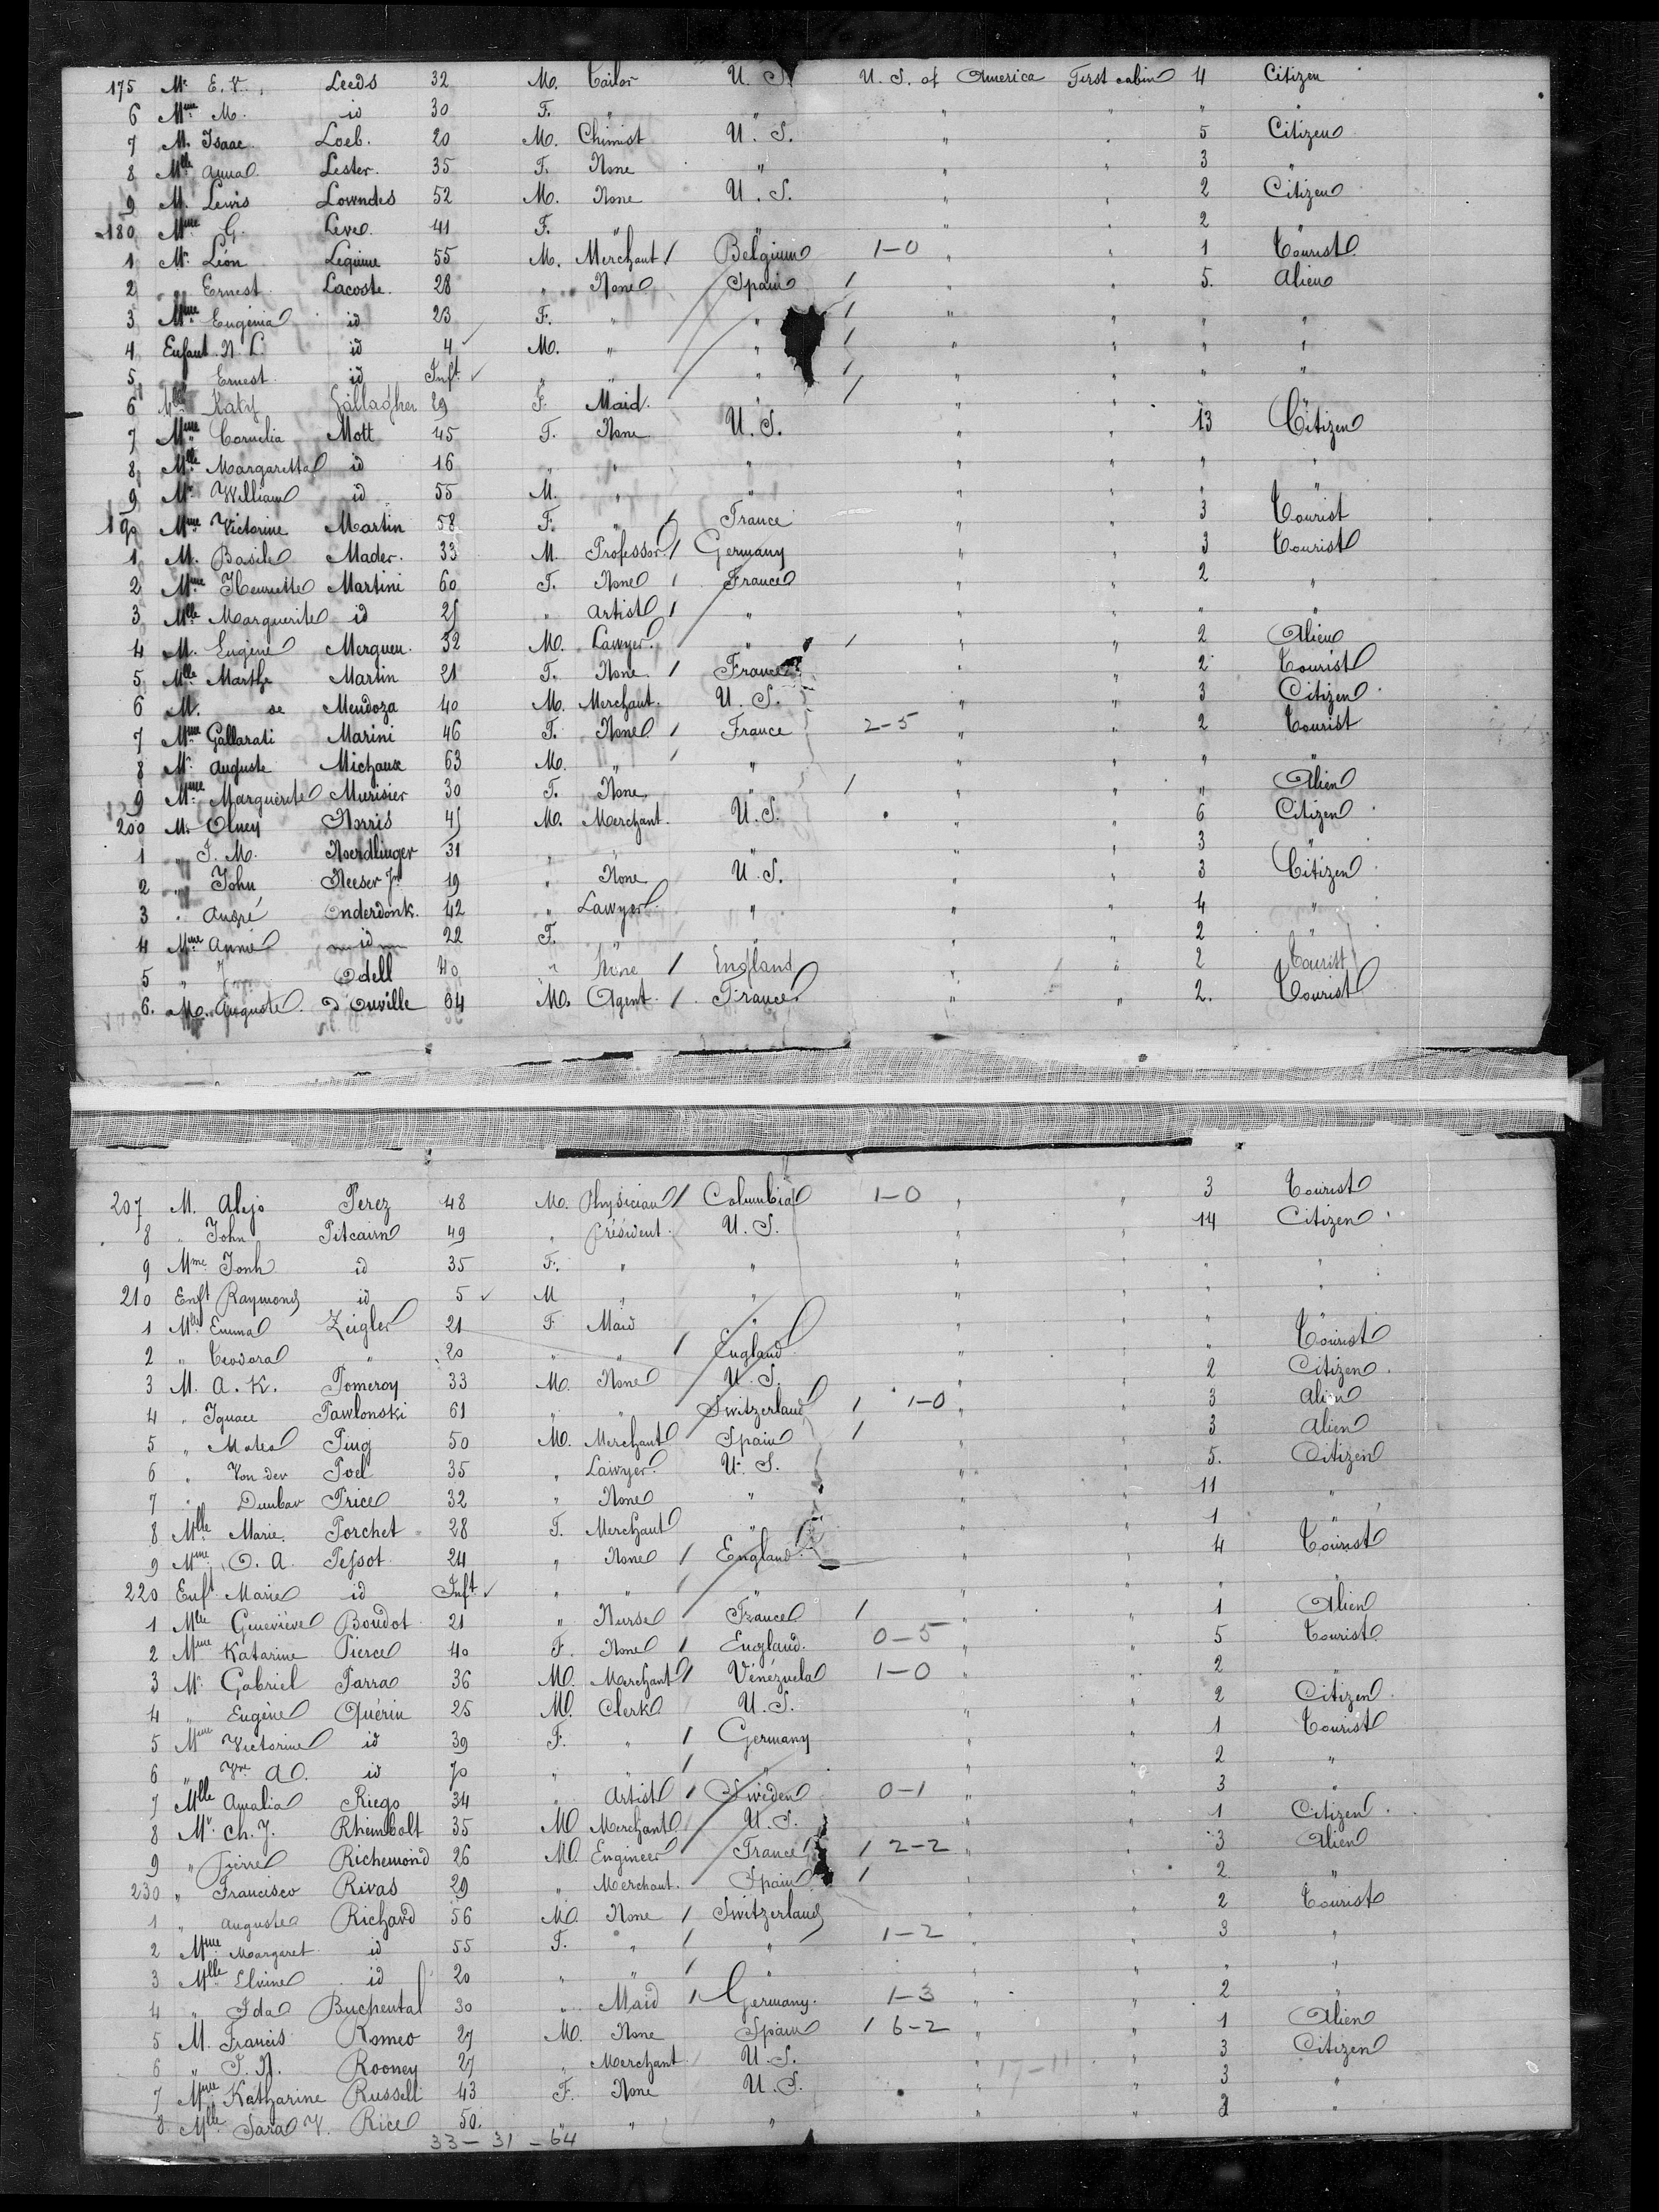 175 Mr. E. V. Leeds 32 M. Tailor U. S. U. S. of America First cabin 4 Citizen
6 Mme M. id 30 F. " " " " " "
7 M. Isaac Loeb. 20 M. Chimist U. S. " " 5 Citizen
8 Mlle Anna Lester. 35 F. None " " " 3 "
9 M. Lewis Lowndes 52 M. None U. S. " " 2 Citizen
180 Mme G. 41 F. " " " " 2 "
1 Mr. Léon Lequime 55 M. Merchant / Belgium 1-0 " " 1 Tourist
2 " Ernest Lacoste. 28 " None Spain / " " 5. Alien
3 Mme Eugénia id 23 F. " " / " " " "
4 Enfant N. L. id 4 ✓ M. " " / " " " "
5 " Ernest id Inft ✓ " " " / " " " "
6 Mlle Katy Gallagher 29 F. Maid. " / " " " "
7 Mme Cornelia Mott 45 F. None U. S. " " 13 Citizen
8 Mlle Margaretta id 16 " " " " " " "
9 Mr William id 55 M. " " " " " "
190 Mme Victorine Martin 58 F. " / France " " 3 Tourist
1 M. Basile Mader. 33 M. Professor / Germany " " 3 Tourist
2 Mme Henriette Martini 60 F. None / France " " 2 "
3 Mlle Marguerite id 25 " Artist / " " " " "
4 M. Eugène 32 M. Lawyer. " / " " 2 Alien
5 Mlle Marthe Martin 21 F. None / France " " 2 Tourist
6 M. de Mendoza 40 M. Merchant. U. S. " " 3 Citizen
7 Mme Gallarati Marini 46 F. None / France 2-5 " " 2 Tourist
8 Mr. Auguste Michaux 63 M. " / " " " " "
9 Mme Marguerite Murisier 30 F. None " / " " " Alien
200 M. Olney Norris 45 M. Merchant. U. S. " " 6 Citizen
1 " J. M. Noerdlinger 31 " " " " " 3 "
2 " John Neeser Jr 19 " None U. S. " " 3 Citizen
3 " André Onderdonk. 42 " Lawyer " " " 4 "
4 Mme Annie id 22 F. " " " " 2 "
5 " Odell 40 " None / England " " 2 Tourist
6. M. Auguste D'Ouville 64 M. Agent. / France " " 2. Tourist
207 M. Alejo Perez 48 M. Physician / Columbia 1-0 " " 3 Tourist
8 " John Pitcairn 49 " Président U. S. " " 14 Citizen
9 Mme Jonh id 35 F. " " " " " "
210 Enft Raymond id 5 ✓ M " " " " " "
1 Mlle Emma Zeigler 21 F Maid " " " " "
2 " Teodora " 20 " " / England " " " Tourist
3 M. A. K. Pomeroy 33 M. None U. S. " " 2 Citizen
4 " Ignace Pawlonski 61 " " Switzerland / 1-0 " " 3 Alien
5 " Mateo Puig 50 M. Merchant Spain / " " 3 Alien
6 " Von der Poel 35 " Lawyer. U. S. " " 5. Citizen
7 " Dunbar Price 32 " None " " " 11 "
8 Mlle Marie Porchet 28 F. Merchant " " " 1 "
9 Mme O. A. Pessot 24 " None / England " " 4 Tourist
220 Enft Marie id Inft ✓ " " / " " " " "
1 Mlle Geneviève Boudot 21 " Nurse France / " " 1 Alien
2 Mme Katarine Pierce 40 F. None / England. 0-5 " " 5 Tourist
3 Mr. Gabriel Parra 36 M. Merchant / Vénézuela 1-0 " " 2 "
4 " Eugène Quérin 25 M. Clerk U. S. " " 2 Citizen
5 Mme Victorine id 39 F. " / Germany " " 1 Tourist
6 " Vve A. id 70 " " / " " " 2 "
7 Mlle Amalia Riego 34 " Artist / Sweden 0-1 " " 3 "
8 Mr. Ch. J. Rheimbolt 35 M Merchant U. S. " " 1 Citizen
9 " Pierre Richemond 26 M. Engineer France / 2-2 " " 3 Alien
230 " Francisco Rivas 29 " Merchant. Spain / " " 2 "
1 " Auguste Richard 56 M. None / Switzerland " " 2 Tourist
2 Mme Margaret id 55 F. " / " 1-2 " " 3 "
3 Mlle Elvine id 20 " " / " " " " "
4 " Ida Buchental 30 " Maid / Germany. 1-3 " " 2 "
5 M. Francis Romeo 27 M. None Spain / 6-2 " " 1 Alien
6 " J. N. Rooney 27 " Merchant U. S. " 17-11 " 3 Citizen
7 Mme Katharine Russell 43 F. None U. S. " " 3 "
8 Mlle Sara V. Rice 50. " " " " " 2 "
33 - 31 - 64